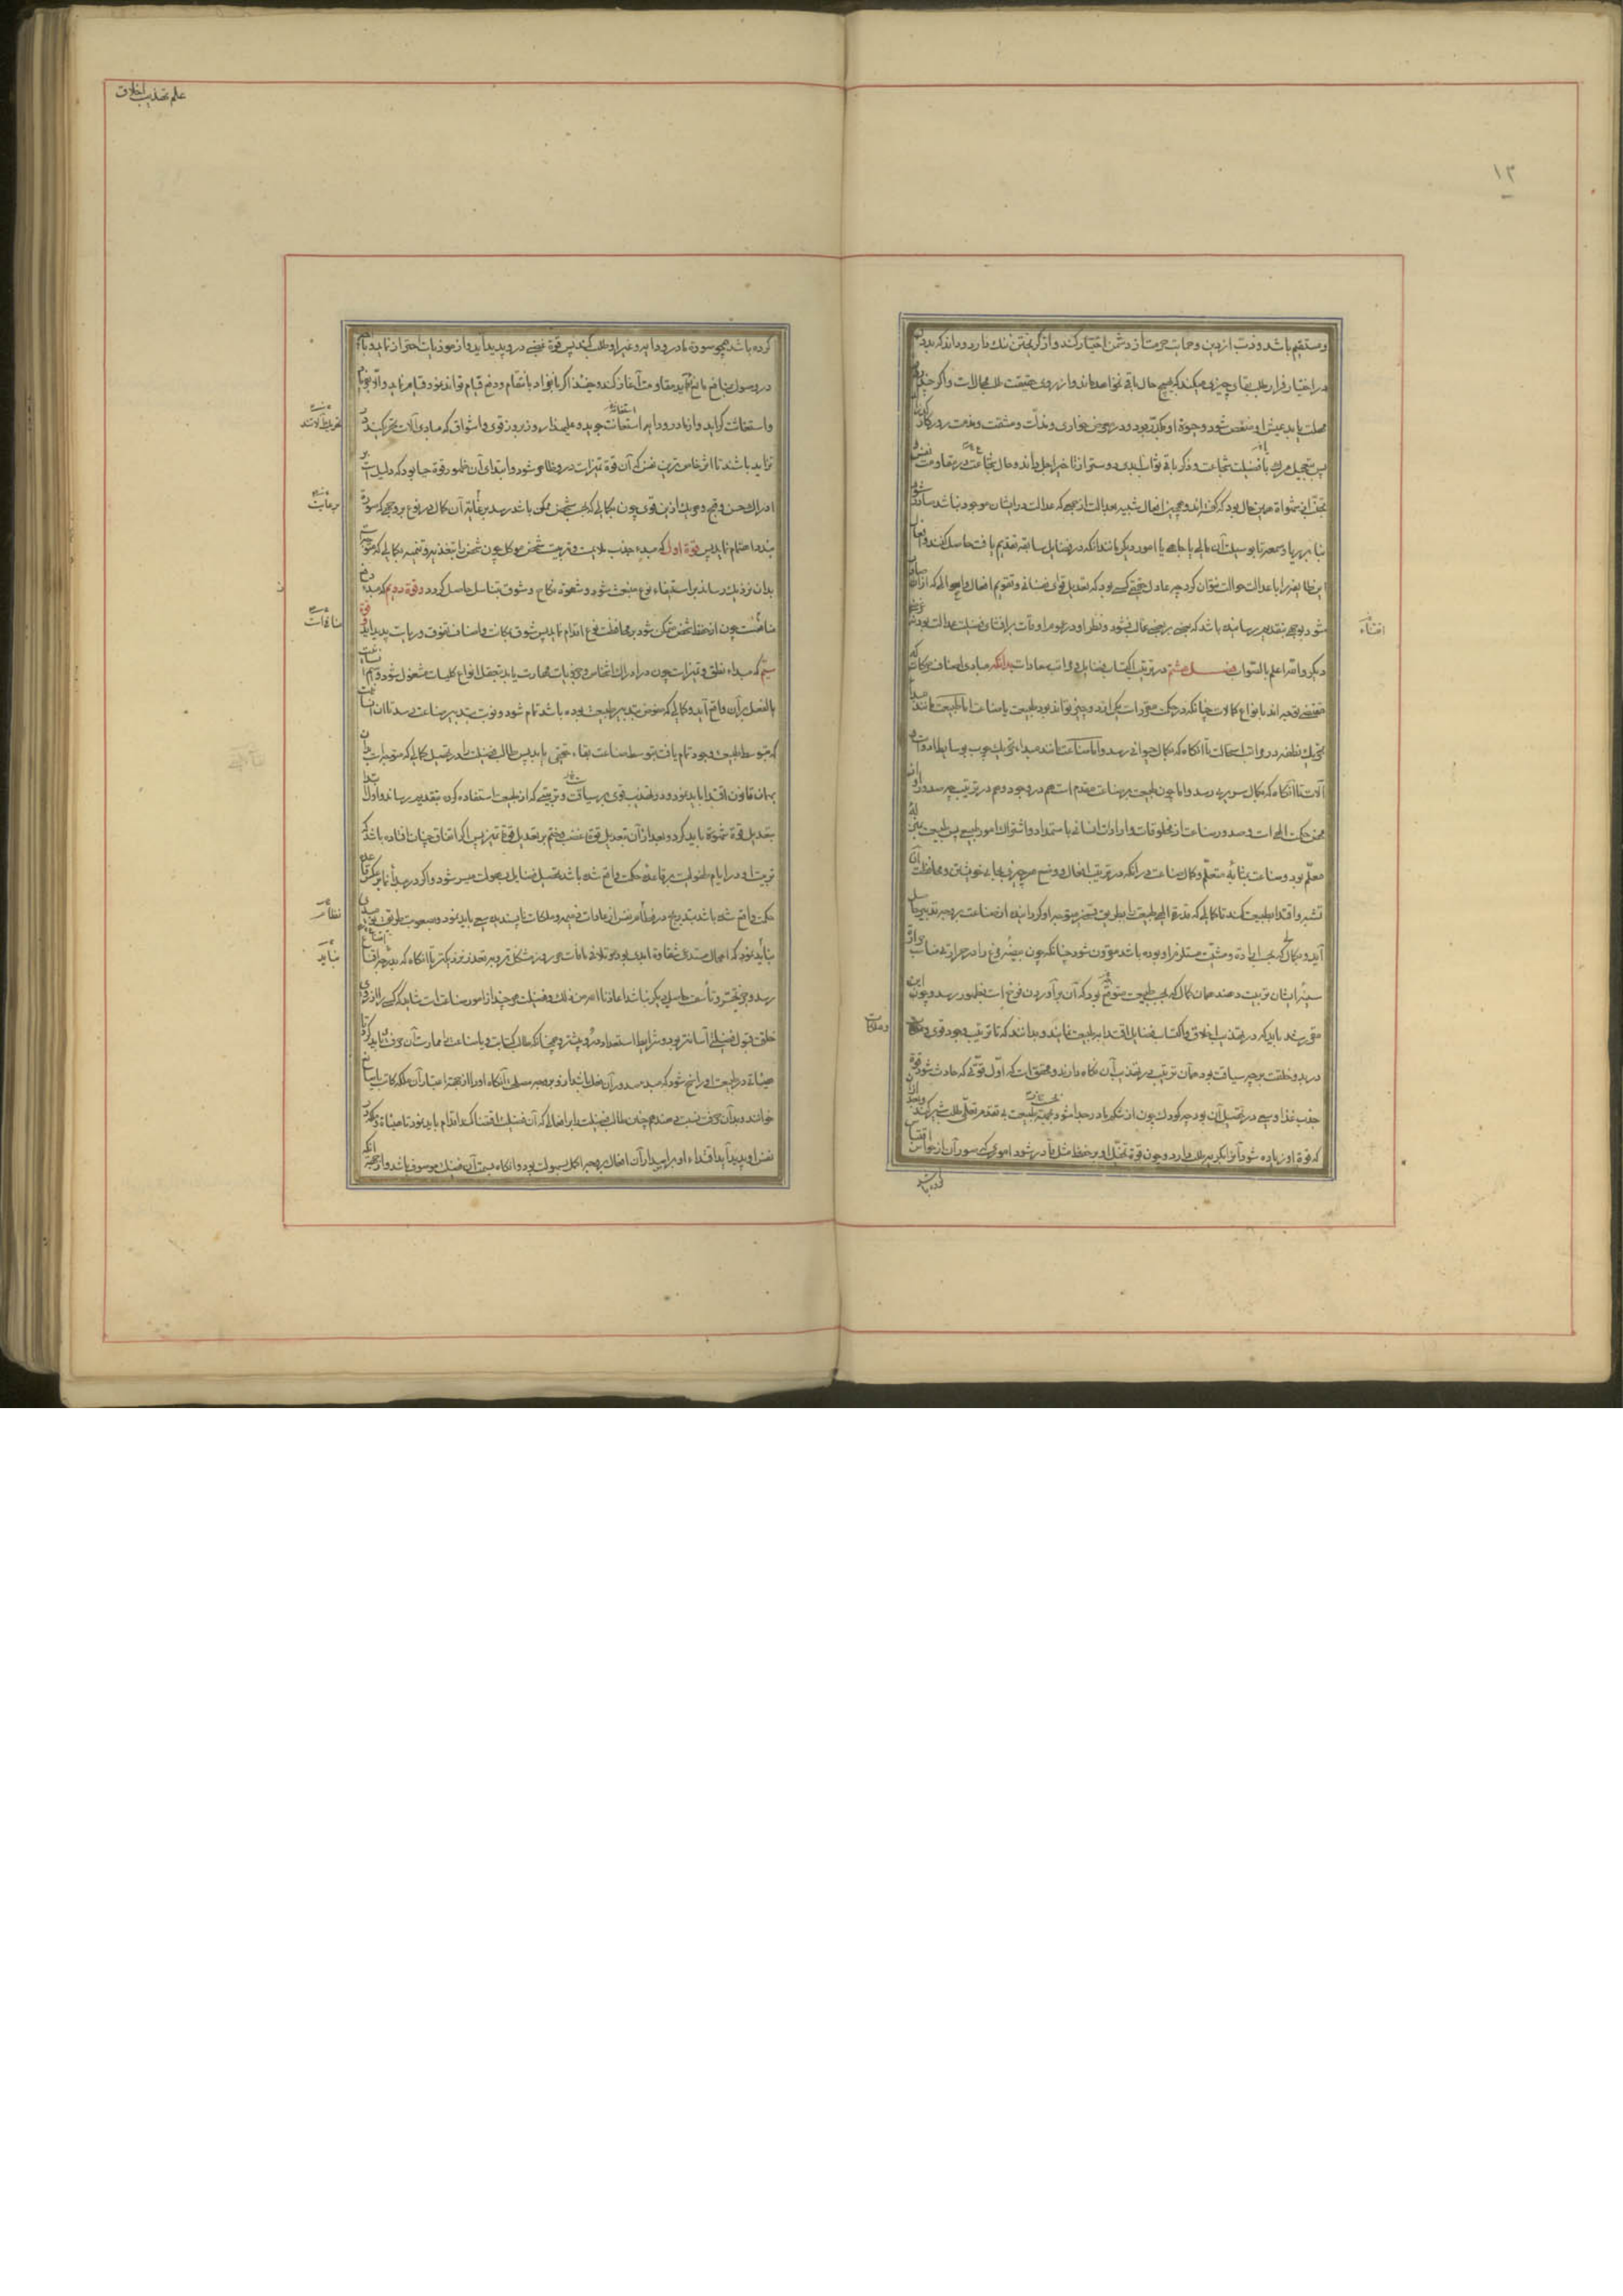 ١٣
و مستقیم باشد و ذب از دین و حمایت حرمت از دشمن اختیار کند و از گریختن ننک دارد و داند که بددل
در اختیار فرار طلب بقای چیزی میکند که بهیچ حال باقی نخواهد ماند و از روی حقیقت طلب محالات و اگر چند روز
مهلت یابد عیش او منغص شود و حیوة او مکدر بود و در معرض خواری و مذلت و مشقت و مذمت روزگار
پس تعجیل مرک با فضیلت شجاعت و ذکر باقی و ثواب ابدی دوستر از تاخیر اجل داند و حال شجاعت در مقاومت نفس
این نظایفه را با عدالت حوالت نتوان کرد چه عادل حقیقی کسی بود که تعدیل قوای نفسانی و تقویم افعال و احوالی که از آن
شود بوجهی بتقدیم رسانیده باشد که بعضی بر بعضی غالب نشود و نظر او در عموم اوقات بر اقتنای فضیلت عدالت بود نه
دیگر والله اعلم بالصواب فصل هشتم در ترتیب اکتساب فضایل و مراتب سعادات بدانکه مبادی اصناف حرکات که
مقتضی توجه اند بانواع کمالات چنانکه در حکمت مقرر است یکی از دو چیز تواند بود طبیعت یا صناعت اما طبیعت مانند مبدأ
تحریک نطفه در مراتب استحالت تا آنکاه که بکمال حیوانی رسد و اما صناعت مانند مبداء تحریک چوب بوسایط ادوات و
آلات تا آنکاه که بکمال سریری رسد و اما چون طبیعت بر صناعت مقدم است هم در وجود و هم در ترتیب چه صدور او از
محض حکمت الهی است و صدور صناعت از مخلوقات و ارادات انسانی باستمداد و اشتراک امور طبیعی پس طبیعت بمنزلهٔ
معلم بود و صناعت بمثابهٔ متعلم و کمال صناعت در آنکه در ترتیب افعال و وضع هر چیزی بجای خویش و محافظت آن
تشبه و اقتدا بطبیعت کند تا کمالی که قدرت الهی طبیعت را بطریق تسخیر متوجه او گردانیده از صناعت بر وجه تدبیر حاصل
آید و بکمالی که بحسب اراده و مشیت مستلزم او بوده باشد مقرون شود چنانکه چون بیضهٔ مرغ را در حرارتی مناسب حرارت
سینهٔ ایشان تربیت دهند همان کمال که بحسب طبیعت متوقع بود که آن بر آوردن فرخ است بظهور رسد و چون این
مقرر شد باید که در تهذیب اخلاق و اکتساب فضایل اقتدا بطبیعت نمایند و بدانند که تا ترتیب وجود قوی و ملکات
در بدو خلقت بر چه سیاقت بود همان ترتیب در تهذیب آن نکاه دارند و محقق است که اول قوتی که حادث شود قوت
جذب غذا و سعی در تحصیل آن بود چه کودک چون از شکم مادر جدا شود بطبیعت بی تقدم تعلمی طلب شیر کند و بعد از آن
که قوة او زیاده شود آنرا بکریه طلب دارد و چون قوة تخیل او بر حفظ مثل قادر شود اموری که صور آن از حواس اقتباس
کرده باشد
اقتناء
و ملکات
علم تهذیب اخلاق
کرده باشد همچو صورة مادر و دایه و غیر او طلب کند پس قوة غضبی در و پدید آید و از موذیات احتراز نماید و با آنچه
در وصول بمنافع مانع آید مقاومت آغاز کند و حینئذ اکر بانفراد بانتقام و دفع قیام تواند نمود قیام نماید و الا بفریاد
و استغاثت کراید و از مادر و دایه استعانت جوید و علیهذا روز بروز قوی و اشواق که مبادی آلات تحریکند در
تزاید باشند تا اثر خاص ترین نفس که آن قوة تمیز است در و ظاهر شود و ابتدای آن ظهور قوة حیا بود که دلیل است بر
ادراک حسن و قبح و هر یک ازین قوی چون بکمالی که بحسب شخص ممکن باشد رسد برعایت آن کمال در نوع بر وجهی که صورت
بندد اهتمام نماید پس قوة اول که مبدء جذب ملایمت و تربیت شخص موکل چون شخص را بتغذیه و تنمیه بکمالی که متوجهست
بدان نزدیک رساند بر استبقاء نوع منبعث شود و شهوة نکاح و شوق بتناسل حاصل کردد و قوة دویم که مبدء دفع
منافیست چون از حفظ شخص متمکن شود بر محافظت نوع اقدام نماید پس شوق بکرامت و اصناف تفوق و ریاست پدید آید و قوة
سیم که مبداء نطق و تمیز است چون در ادراک اشخاص و جزویات مهارت یابد بتعقل انواع و کلیات مشغول شود و اسم
بالفعل بر آن واقع آید و کمالی که مفوض بتدبیر طبیعت بوده باشد تمام شود و نوبت بتدبیر صناعت رسد تا
که بتوسط طبیعت وجود تمام یافت بتوسط صناعت بقاء حقیقی یابد پس طالب فضیلت را در تحصیل کمالی که متوجه است بدان
بهمان قانون اقتدا باید نمود و در تهذیب قوی بر سیاقت و ترتیبی که از طبیعت استفاده کرد بتقدیم رساند و اول ابتدا
بتعدیل قوة شهوة باید کرد و بعد از آن تعدیل قوة غضب و ختم بر تعدیل قوة تمیز پس اکر اتفاق چنان افتاده باشد که
تربیت او در ایام طفولیت بر قاعدهٔ حکمت واقع شده باشد تحصیل فضایل بسهولت میسر شود و اکر در مبدأ نما بر عکس قاعدهٔ
حکمت واقع شده باشد بتدریج در فطام نفس از عادات ذمیمه و ملکات ناپسندیده سعی باید نمود و بصعوبت طریق نومید
نباید نمود که اهمال مستدعی شقاوة ابدی بود و تلافی مافات هر روز مشکل تر و بتعذر نزدیکتر تا آنکاه که بدرجهٔ امتناع
رسد و جز تحسر و تأسف حاصلی دیکر نباشد اعاذنا الله من ذلک
خلقت قبول فضیلتی آسانتر بود و شرایط استعداد درو بیشتر و همچنانکه طالب کتابت یا صناعت را ممارست آن حرف باید کرد تا
هیئاتی در طبیعت او راسخ شود که مبدء صدور آن فعل باشد
خوانند و بدان حرفت نسبت دهند همچنان طالب فضیلت را بر افعالی که آن فضیلت اقتضا کند اقدام باید نمود تا هیئاة و ملکه در
نفس او پدید آید
منافات
نظام
نباید